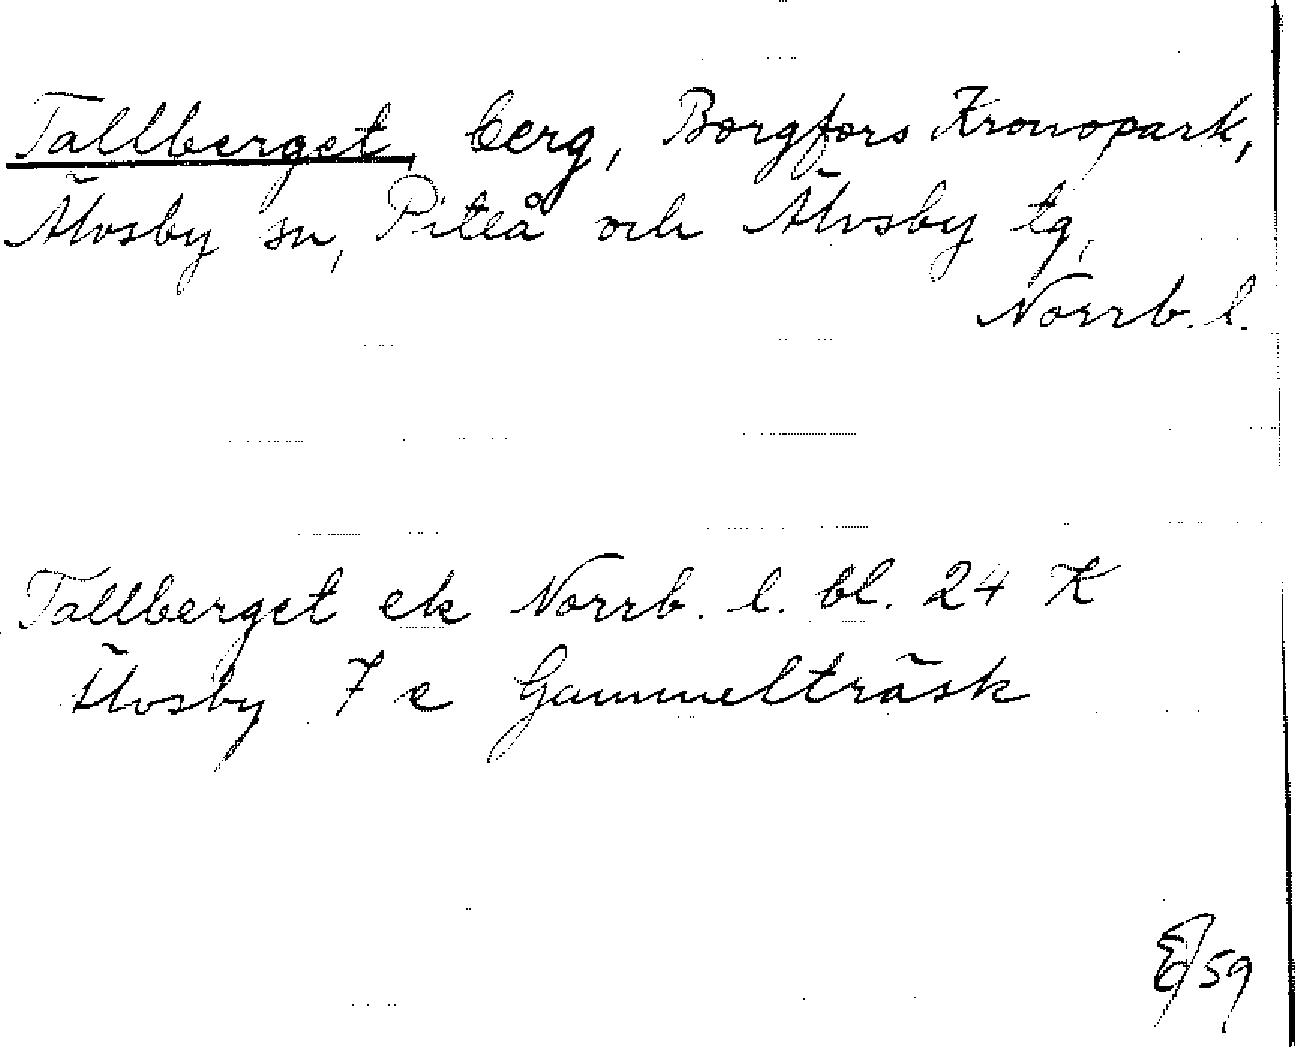 Tallberget, berg, Borgfors Kronopark,
Älvsby sn, Piteå och Älvsby tg,
Norrb. l.
Tallberget ek Norrb. l. bl. 24 K
Älvsby 7 e Gammelträsk
/59